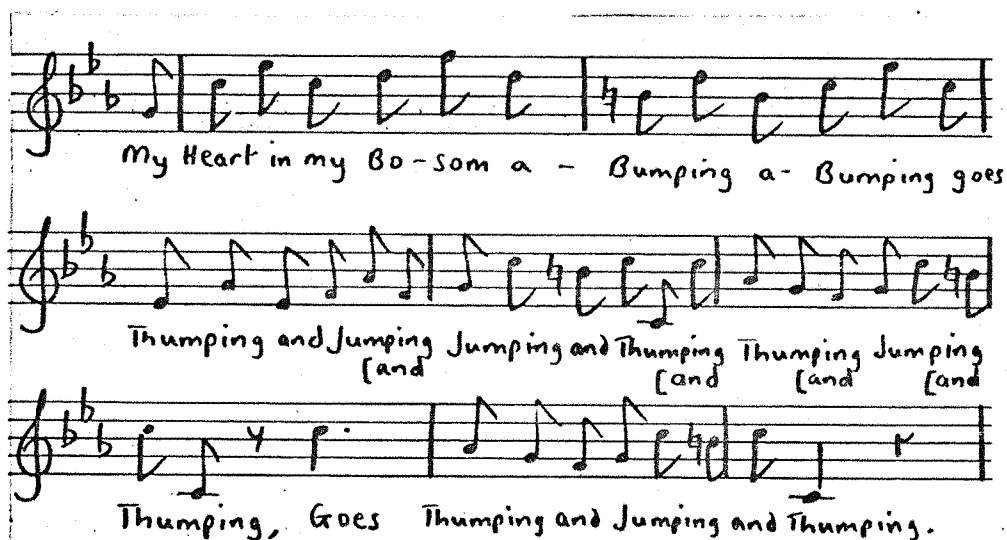 My Heart in my Bo-som a - Bumping a- Bumping goes
Thumping and Jumping Jumping and Thumping Thumping Jumping
[and [and [and [and
Thumping, Goes Thumping and Jumping and Thumping.